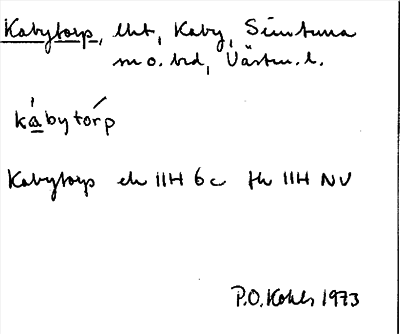 Kabytorp, lht, Kaby, Simtuna
m o. brd, Västm. l.
kábytórp
Kabytorp ek 11H 6c fk 11H NV
P.O. Kohls 1973